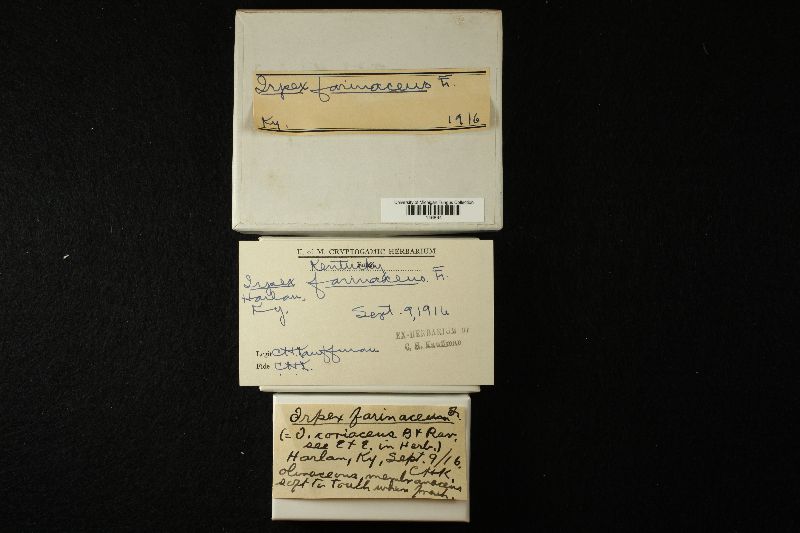 Irpex farinaceus Fr.
Ky. 1916
University of Michigan Fungus Collection
U. of M. CRYPTOGAMIC HERBARIUM
Kentucky
Irpex farinaceus. Fr.
Harlan,
Ky. Sept. 9, 1916
EX-HERBARIUM OF
C. H. Kauffman
Legit C.H. Kauffman
Fide C.H.K.
Irpex farinaceus Fr.
(= I. coriaceus B & Rav.
see E & E. in Herb.)
Harlan, Ky, Sept. 9/16.
C.H.K.
olivaceous, membranaceus
soft to touch when fresh.